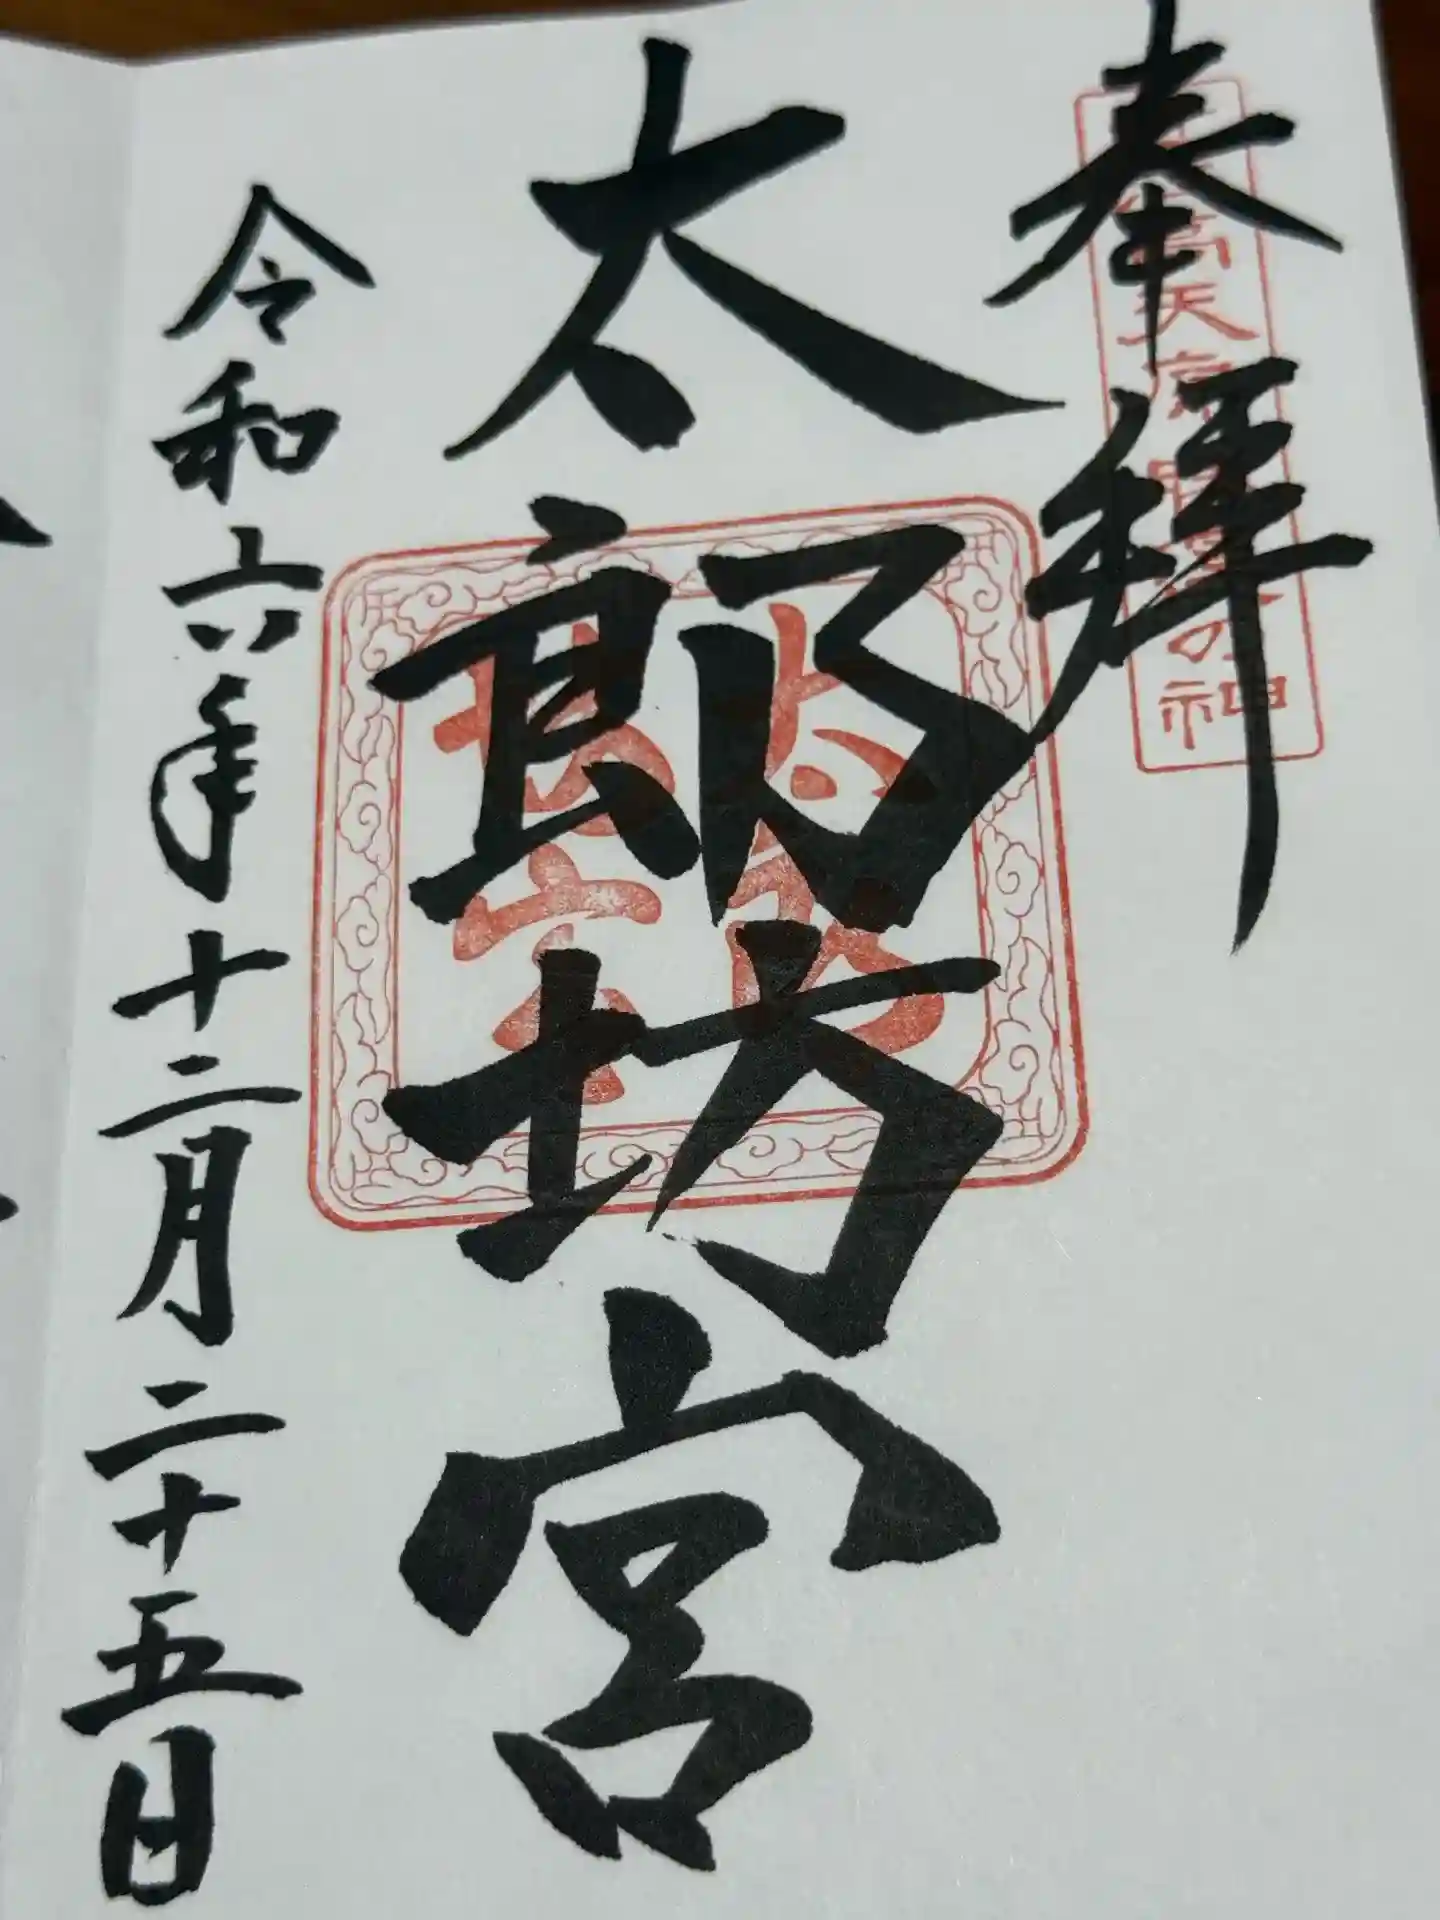 奉拝
太郎坊宮
令和六年十二月二十五日